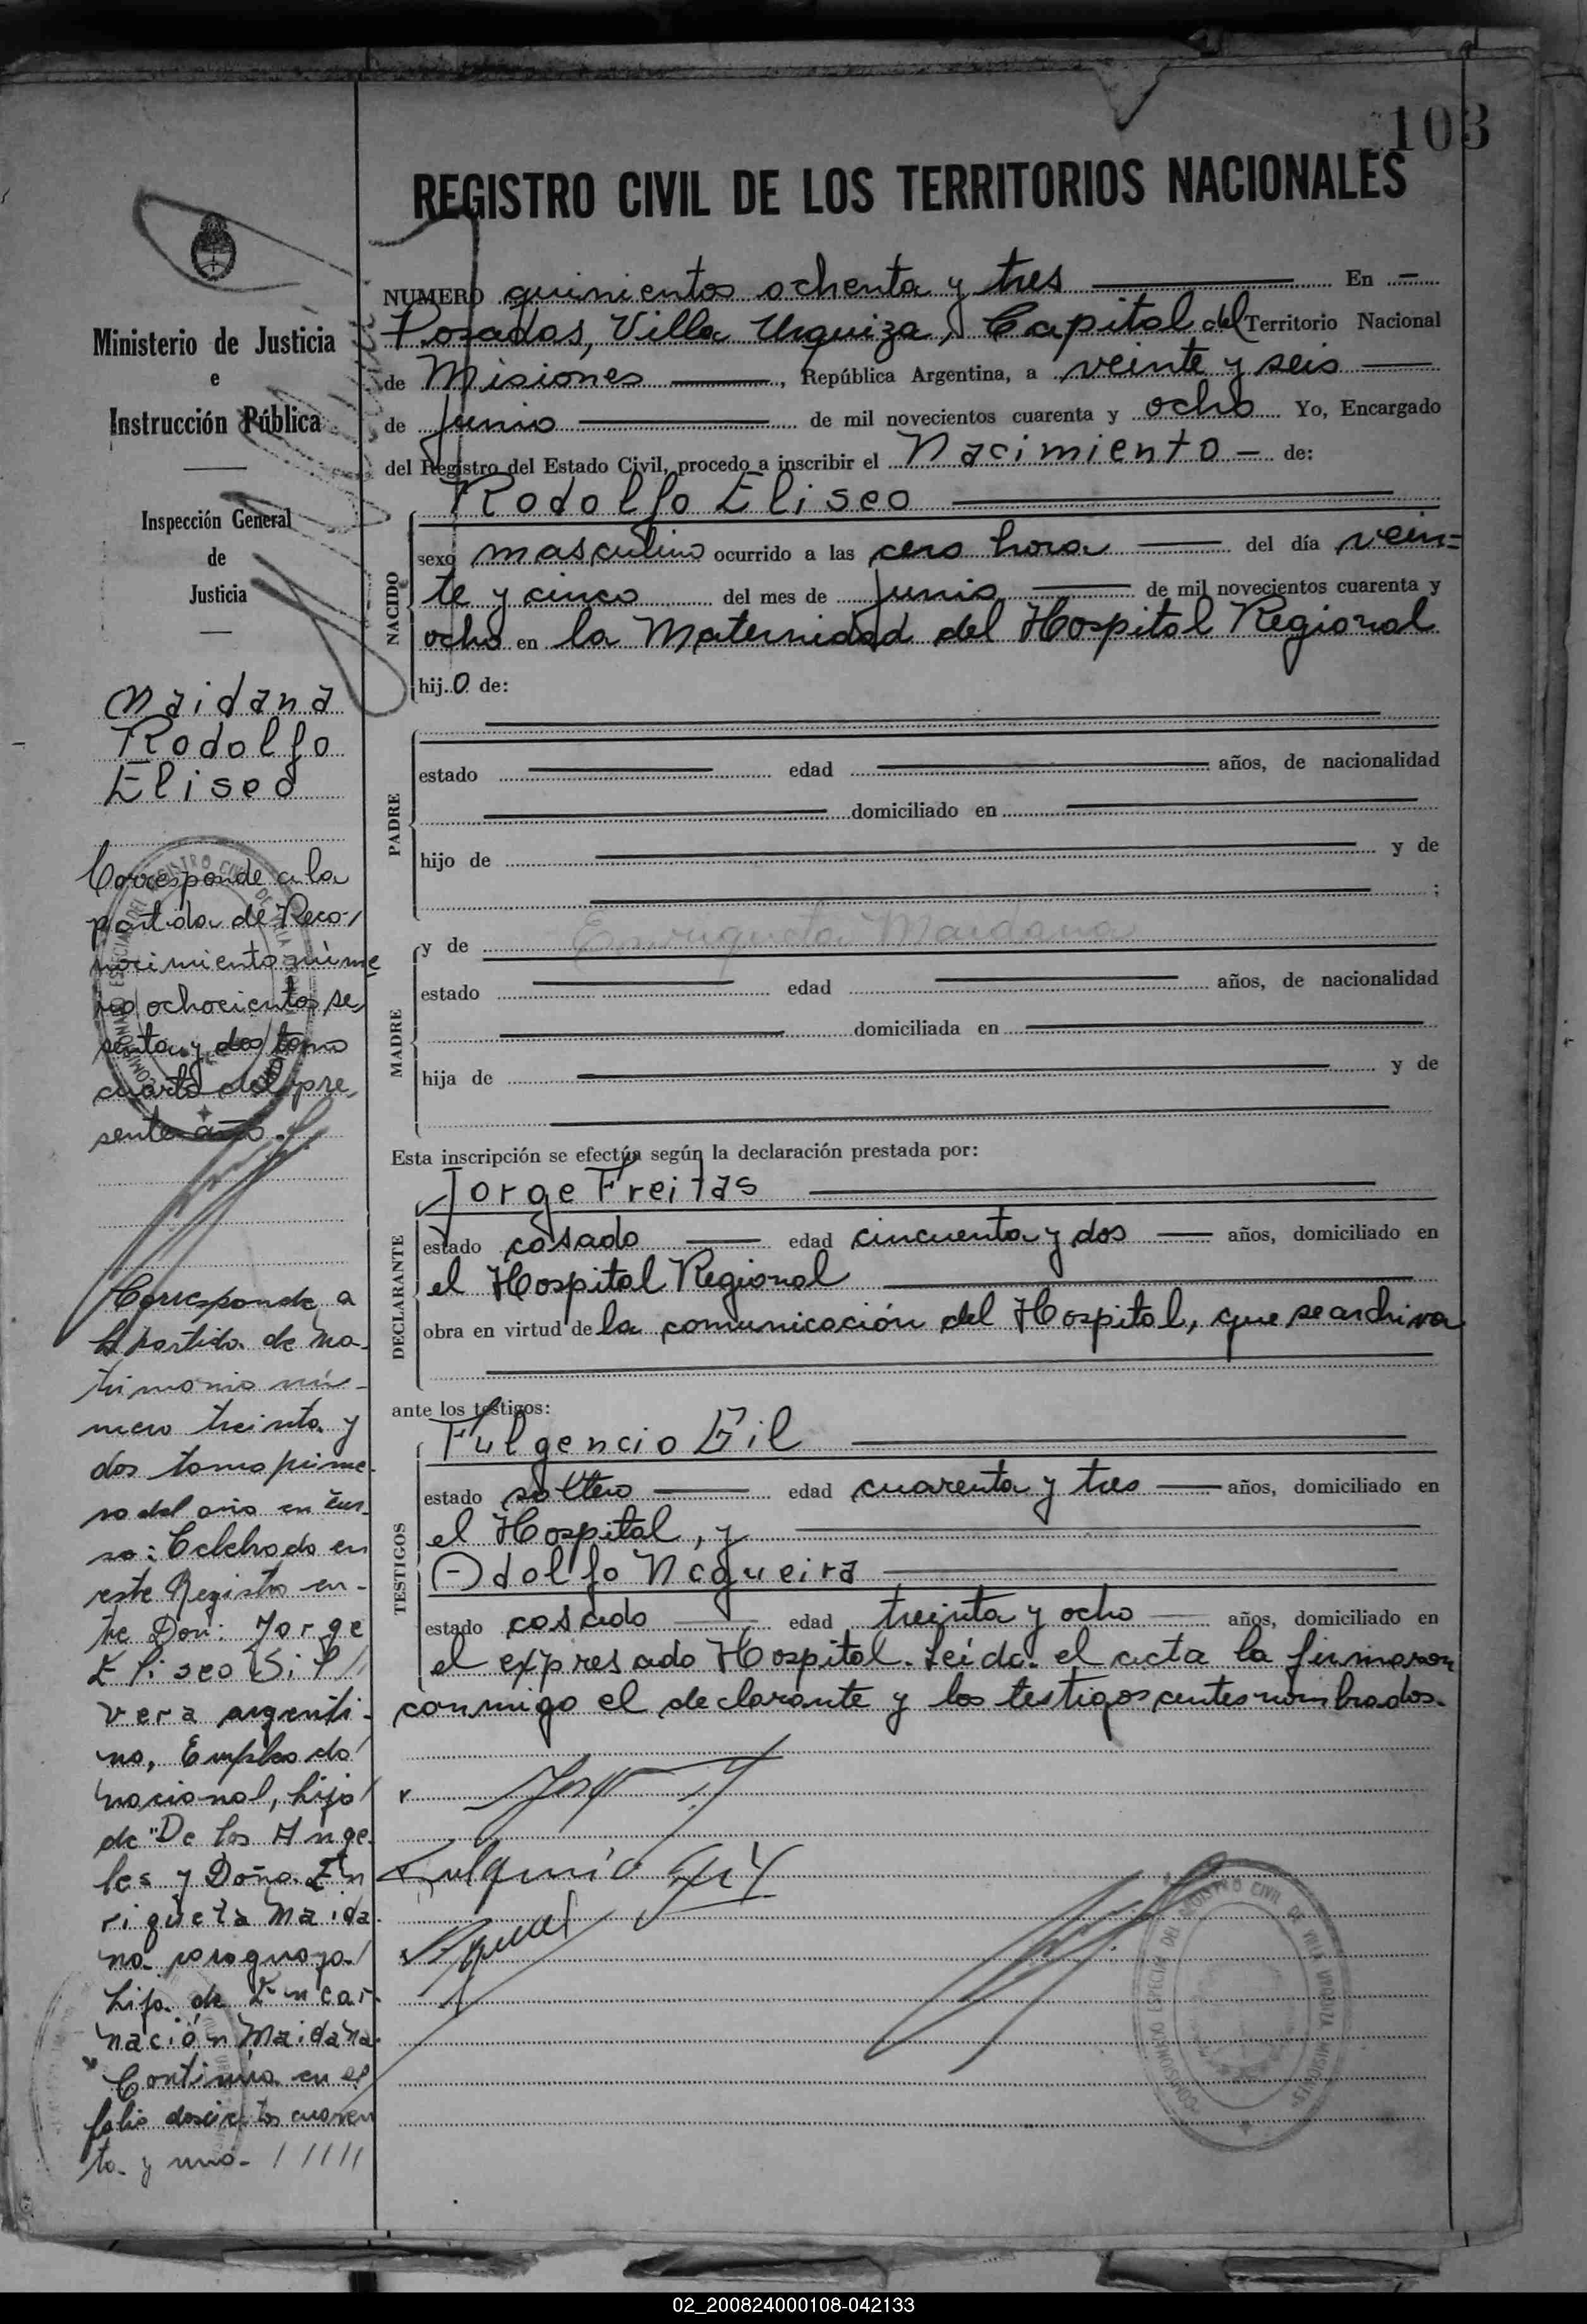 103
REGISTRO CIVIL DE LOS TERRITORIOS NACIONALES
Ministerio de Justicia
e
Instrucción Pública
Inspección General
de
Justicia
Maidana
Rodolfo
Eliseo
Corresponde a la
partida de Reco-
nocimiento núme
ro ochocientos se
senta y dos tomo
cuarto del pre
sente año.
Corresponde a
la partida de Ma-
trimonio nú-
mero treinta y
dos tomo prime-
ro del año en cur
so: Celebrado en
este Registro en-
tre Don: Jorge
Eliseo Sil
vera argenti-
no, Empleado
nacional, hijo
de "De los Ange-
les y Doña En
riqueta Maida-
na paraguaya
hija de Encar-
nación Maidana
Continúa en el
folio doscientos cuaren
ta y uno. / / / / /
NUMERO quinientos ochenta y tres En
Posadas, Villa Urquiza, Capital del Territorio Nacional
de Misiones, República Argentina, a veinte y seis
de Junio de mil novecientos cuarenta y ocho Yo, Encargado
del Registro del Estado Civil, procedo a inscribir el Nacimiento de:
Rodolfo Eliseo
NACIDO
sexo masculino ocurrido a las cero hora del día vein=
te y cinco del mes de Junio de mil novecientos cuarenta y
ocho en la Maternidad del Hospital Regional
hijo de:
PADRE
estado edad años, de nacionalidad
domiciliado en
hijo de y de
;
MADRE
y de Enriqueta Maidana
estado edad años, de nacionalidad
domiciliada en
hija de y de
Esta inscripción se efectúa según la declaración prestada por:
Jorge Freitas
DECLARANTE
estado casado edad cincuenta y dos años, domiciliado en
el Hospital Regional
obra en virtud de la comunicación del Hospital, que se archiva
ante los testigos:
Fulgencio Gil
TESTIGOS
estado soltero edad cuarenta y tres años, domiciliado en
el Hospital, y
Adolfo Nogueira
estado casado edad treinta y ocho años, domiciliado en
el expresado Hospital. Leída el acta la firmaron
conmigo el declarante y los testigos antes nombrados.
Fulgencio Gil
COMISIONADO ESPECIAL DEL REGISTRO CIVIL DE VILLA URQUIZA MISIONES
02_200824000108-042133